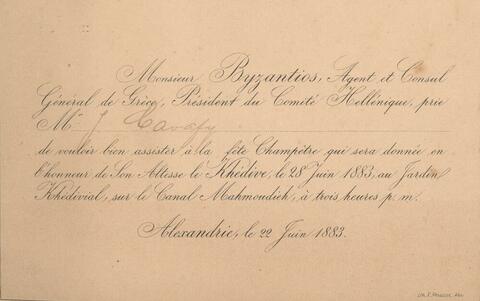 Monsieur Byzantios, Agent et Consul
Général de Grèce, Président du Comité Hellénique, prie
Mr J Cavafy
de vouloir bien assister à la fête Champêtre qui sera donnée en
l'honneur de Son Altesse le Khédive, le 28 Juin 1883, au Jardin
Khédivial, sur le Canal Mahmoudieh, à trois heures p. m.
Alexandrie, le 22 Juin 1883.